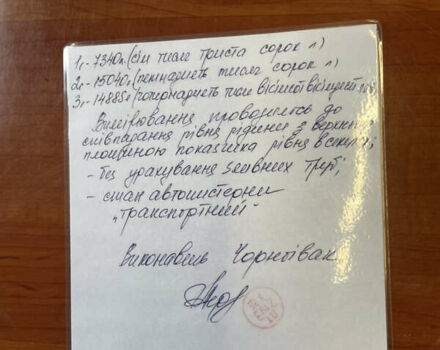 1г - 7340л (сім тисяч триста сорок л)
2г - 15040л (пятнадцять тисяч сорок л)
3г - 14885л (чотирнадцять тисяч вісімсот вісімдесят
Вимірювання проводились до
співпадання рівня рідини з верхньою
площиною показчика рівня в секції;
- без урахування зливних труб;
- стан автоцистерни
"транспортний"
Виконавець Чорногівак